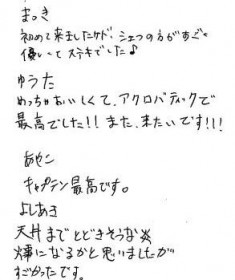 まっき
初めて来ましたケド、シェフの方がすごく
優しくてステキでした♪
ゆうた
めっちゃおいしくて、アクロバティックで
最高でした!!また、来たいです!!!
あやこ
キャプテン最高です。
よしあき
天井までとどきそうな炎
火事になるかと思いましたが
すごかったです。